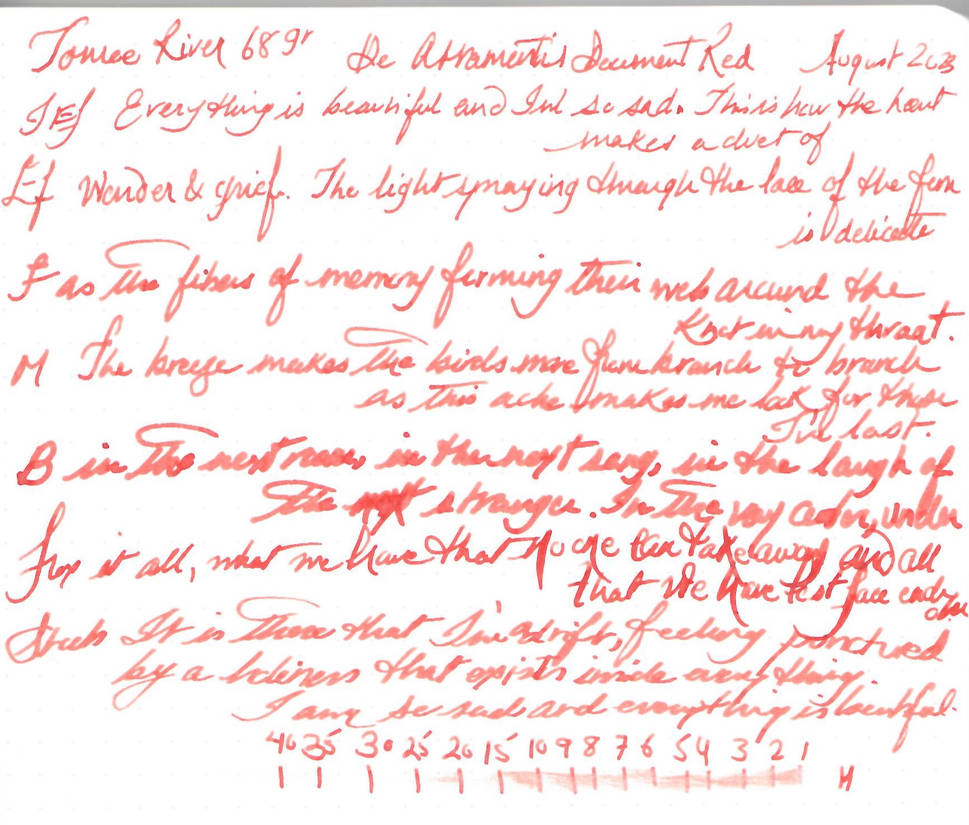 Tomoe River 68gr De Atramentis Document Red August 2023
JEF Everything is beautiful and I'm so sad. This is how the heart
makes a duet of
EF Wonder & grief. The light spraying through the lace of the fern
is delicate
F as the fibers of memory forming their web around the
Knot in my throat.
M The breeze makes the birds move from branch to branch
as this ache makes me look for those
I've lost.
B in the next room, in the next song, in the laugh of
the next stranger. In the very center, under
Fox it all, what we have that no one can take away and all
that we have lost face each other
Stub It is there that I'm adrift, feeling punctured
by a holiness that exists inside everything.
I am so sad and everything is beautiful.
40 35 30 25 20 15 10 9 8 7 6 5 4 3 2 1 M